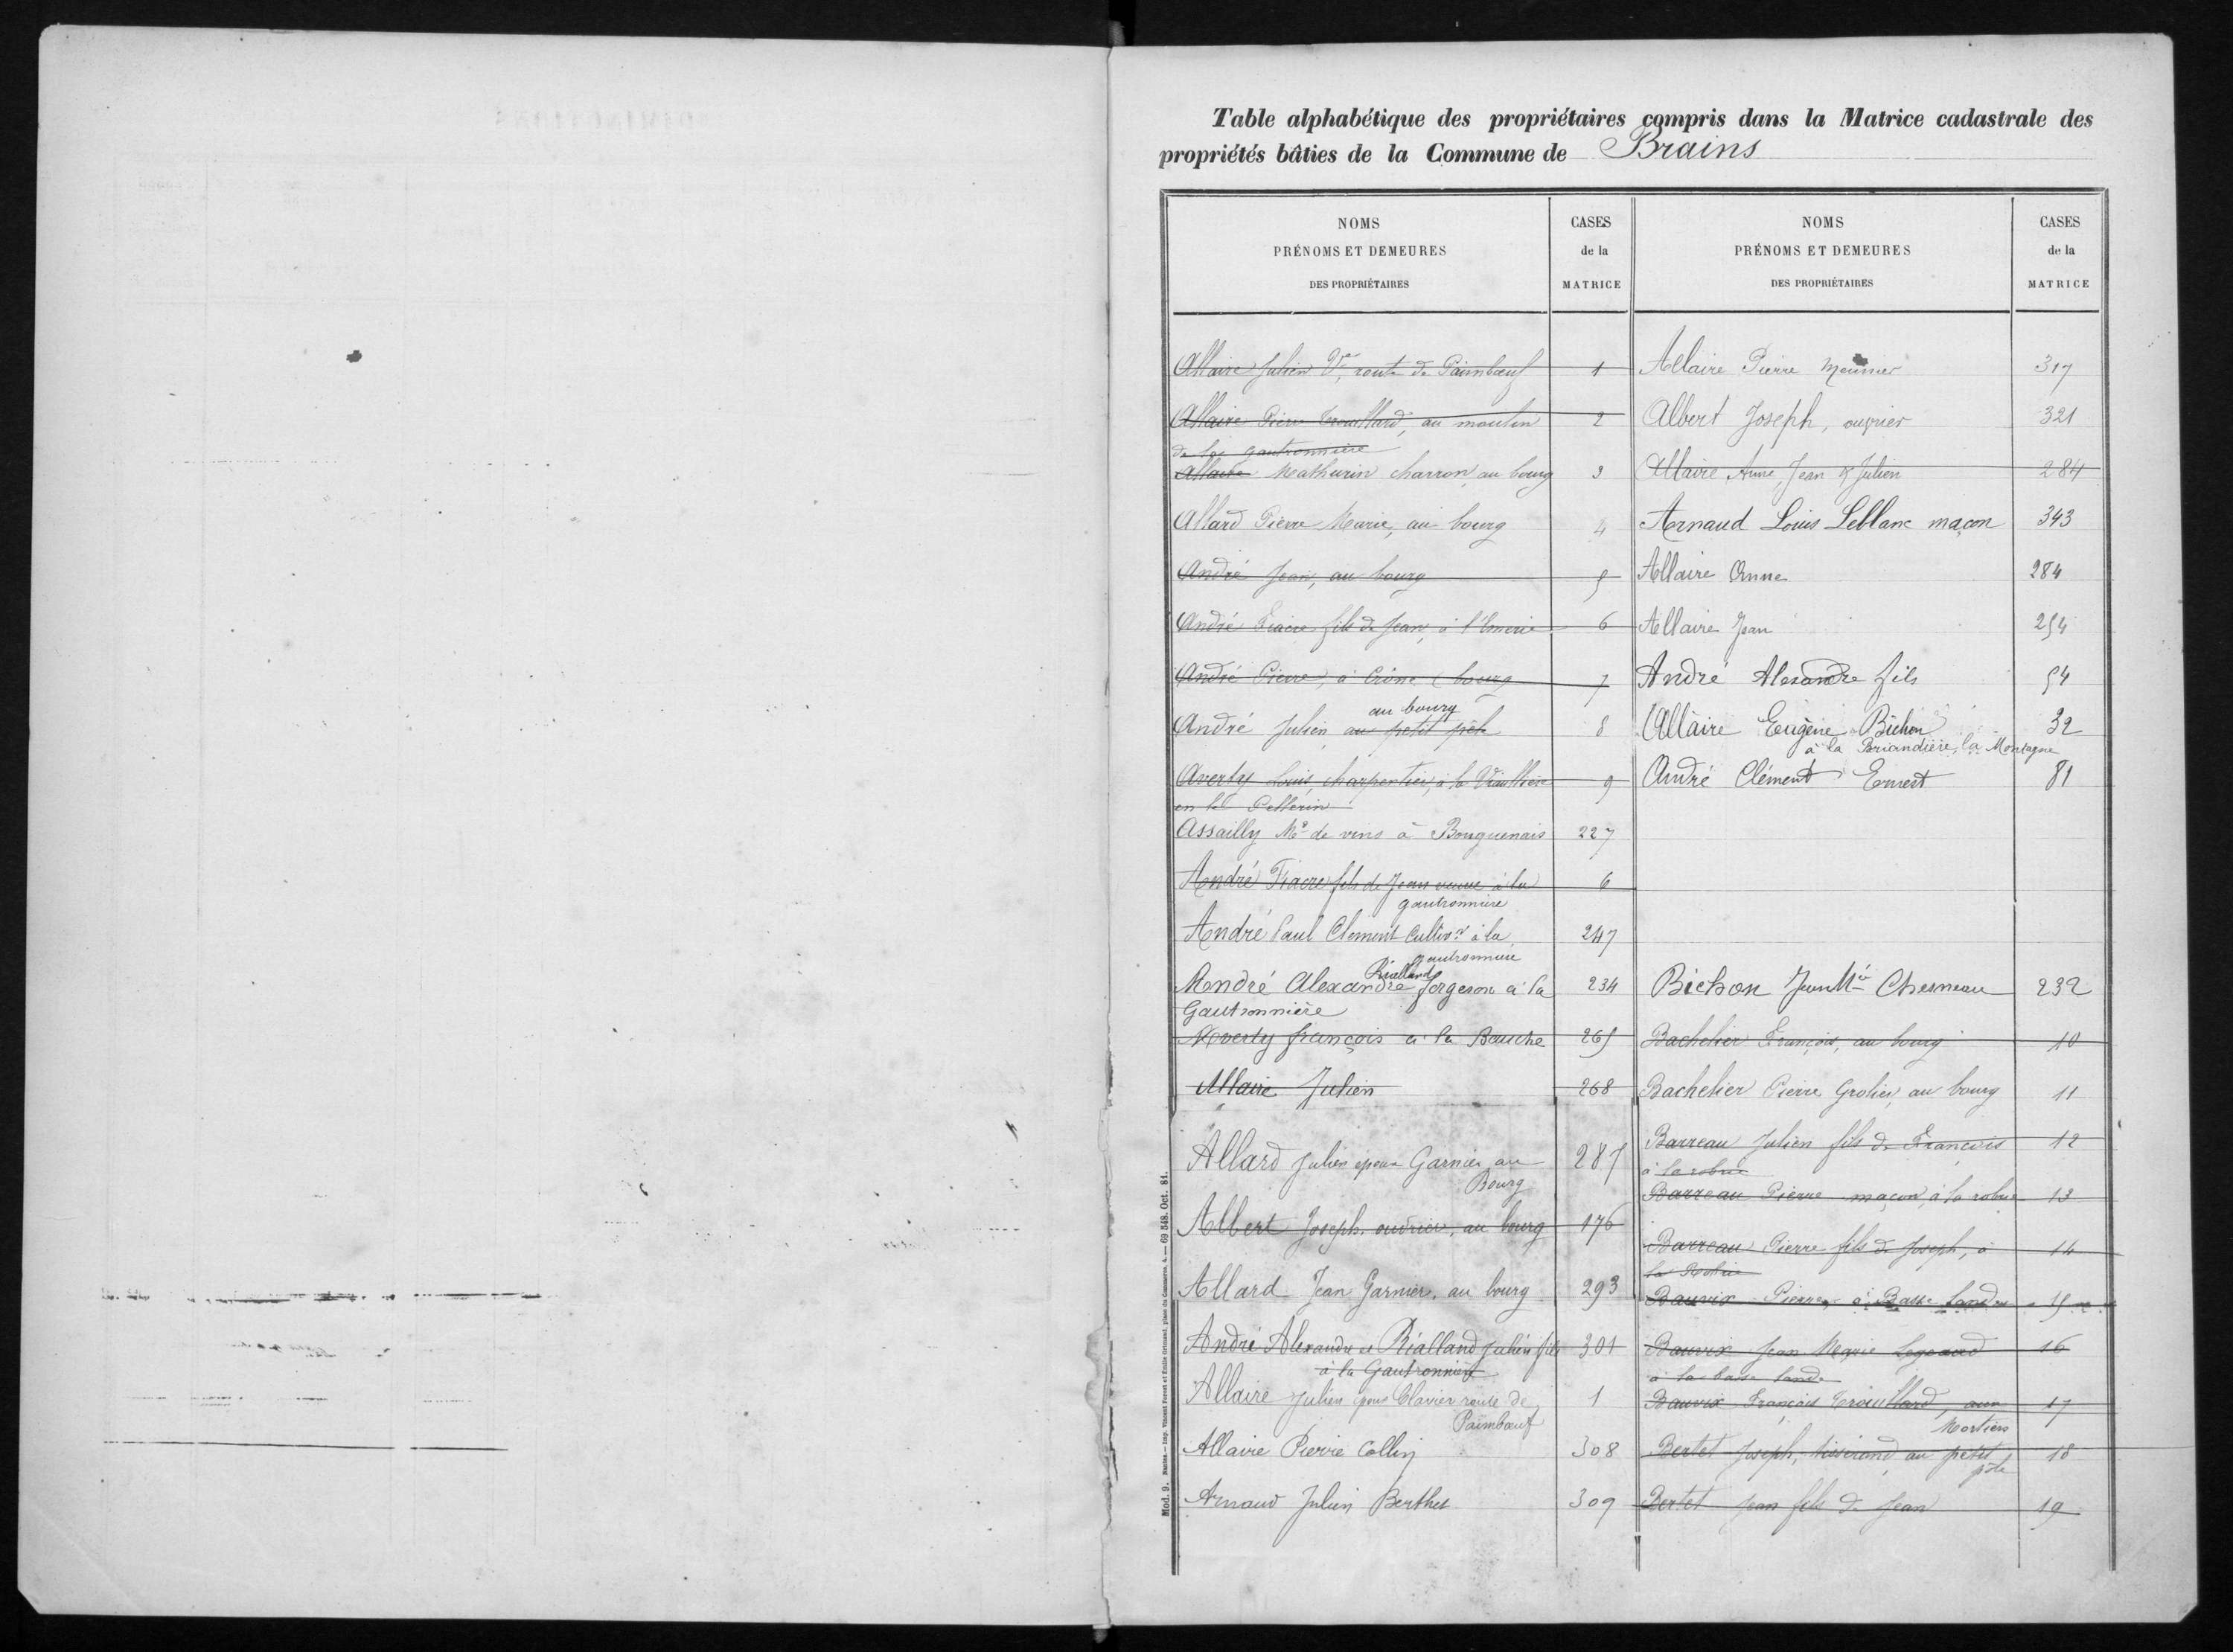 Table alphabétique des propriétaires compris dans la Matrice cadastrale des
propriétés bâties de la Commune de Brains
NOMS
PRÉNOMS ET DEMEURES
DES PROPRIÉTAIRES
CASES
de la
MATRICE
Allaire Julien Ve, route de Paimboeuf 1
Allaire Pierre Trouillard, au moulin 2
de la gautronnière
Allaire Mathurin charron, au bourg 3
Allard Pierre Marie, au bourg 4
André Jean, au bourg 5
André Fiacre fils de Jean, à l'Emerie 6
André Pierre, à (bourg 7
au bourg
André Julien au petit pele 8
Averty Louis, charpentier, à la 9
en le Pellerin
Assailly Md de vins à Bouguenais 227
André Fiacre fils de Jean veuve à la 6
gautronnière
André Paul Clément Cultivr à la 247
gautronnière
Rialland
André Alexandre forgeron à la 234
Gautronnière
Averty françois à la Bauche 265
Allaire Julien 268
Allard Julien époux Garnier au 287
Bourg
Albert Joseph, ouvrier, au bourg 176
Allard Jean Garnier, au bourg 293
André Alexandre et Rialland Julien fils 301
à la Gautronnière
Allaire Julien époux Clavier route de 1
Paimboeuf
Allaire Pierre Collin 308
Arnaud Julien Berthet 309
NOMS
PRÉNOMS ET DEMEURES
DES PROPRIÉTAIRES
CASES
de la
MATRICE
Allaire Pierre Meunier 317
Albert Joseph, ouvrier 321
Allaire Anne, Jean & Julien 284
Arnaud Louis Leblanc maçon 343
Allaire Anne 284
Allaire Jean 254
André Alexandre fils 54
Allaire Eugène Bichon 32
à la Briandière, la Montagne
André Clément Ernest 81
Bichon Jean Mie Chesneau 232
Bachelier François, au bourg 10
Bachelier Pierre Grolier, au bourg 11
Barreau Julien fils de François 12
à la robrie
Barreau Pierre maçon, à la robrie 13
Barreau Pierre fils de Joseph, à 14
la Robrie
Bauvix Pierre, à Basse Lande 15
Bauvix Jean Marie Legeard 16
à la basse lande
Bauvix François Trouillard, aux 17
Mortiers
Bertet Joseph, tisserand au petit 18
pele
Bertet Jean fils de Jean 19
Mod. 9. Nantes.—Imp. Vincent Forest et Emile Grimaud, place du Commerce, 4.—69 348. Oct. 81.